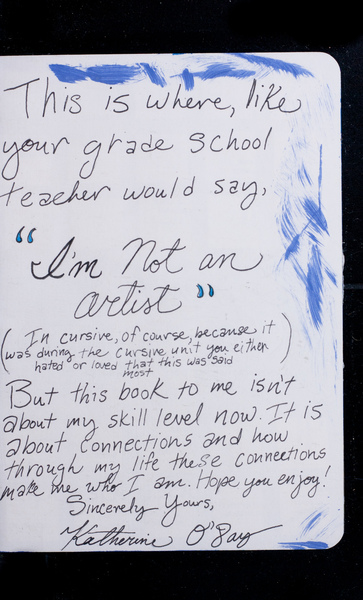 This is where, like
your grade school
teacher would say,
"I'm Not an
artist"
(In cursive, of course, because it
was during the cursive unit you either
hated or loved that this was said
most)
But this book to me isn't
about my skill level now. It is
about connections and how
through my life these connections
make me who I am. Hope you enjoy!
Sincerely Yours,
Katherine